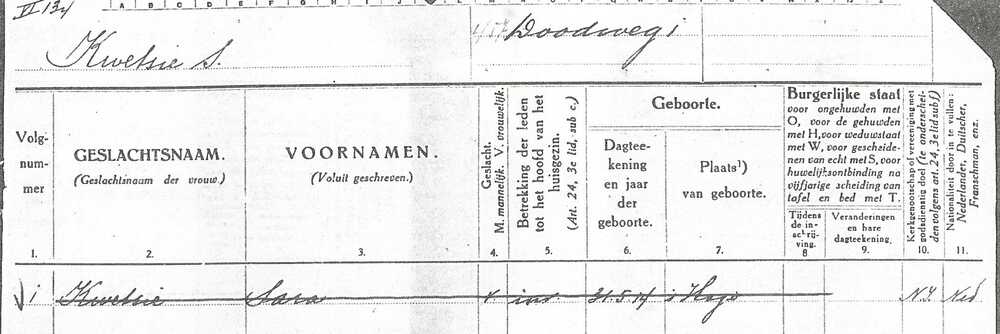 VI 134
Kwetsie S.
Doodweg 1
Volg-
num-
mer
1.
GESLACHTSNAAM.
(Geslachtsnaam der vrouw.)
2.
VOORNAMEN.
(Voluit geschreven.)
3.
Geslacht.
M. mannelijk. V. vrouwelijk.
4.
Betrekking der leden
tot het hoofd van het
huisgezin.
(Art. 24, 3e lid, sub c.)
5.
Geboorte.
Dagtee-
kening
en jaar
der
geboorte.
6.
Plaats¹)
van geboorte.
7.
Burgerlijke staat
voor ongehuwden met
O, voor de gehuwden
met H, voor weduwstaat
met W, voor gescheide-
nen van echt met S, voor
huwelijksontbinding na
vijfjarige scheiding van
tafel en bed met T.
Tijdens
de in-
schrij-
ving.
8
Veranderingen
en hare
dagteekening.
9.
Kerkgenootschap of vereeniging met
godsdienstig doel (te onderschei-
den volgens art. 24, 3e lid sub f)
10.
Nationaliteit door in te vullen:
Nederlander, Duitscher,
Franschman, enz.
11.
1 Kwetsie Sara v inw 31.5.14 's Hage N.I. Ned